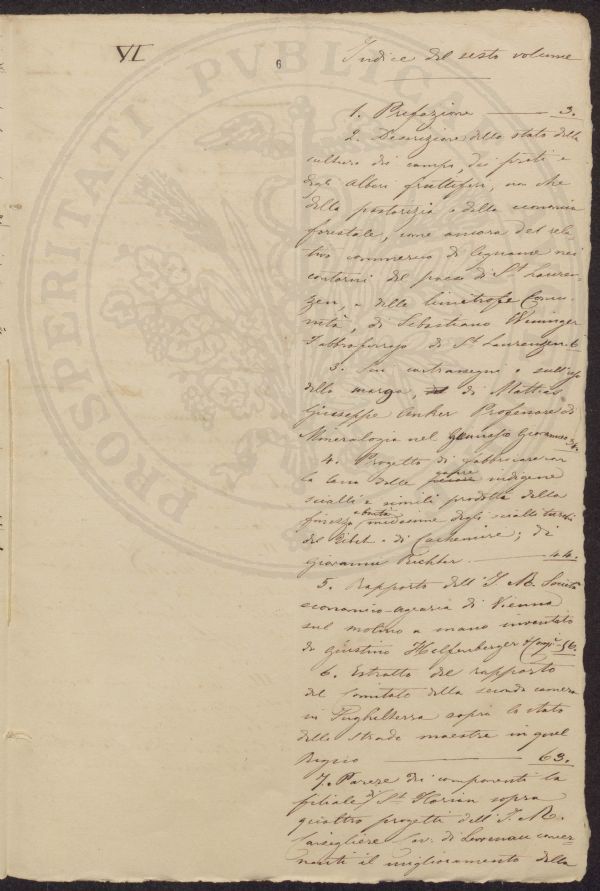 VI
6
Indice del sesto volume
1. Prefazione 3.
2. Descrizione dello stato della
coltura dei campi, dei prati e
degli alberi fruttiferi, non che
della pastorizia e della economia
forestale, come ancora del rela
tivo commercio di legname nei
contorni del paese di St. Lauren-
zen, e delle limitrofe Comu-
nità, di Sebastiano Weninger
Fabbroferrajo di St. Laurenzen. 6
3. Sui contrassegni e sull'uso
della marga, di Mattias
Giuseppe Anker Professore di
Mineralogia nel
4. Progetto di fabbricare con
la lana delle capre indigene
scialli e simili prodotti della
finezza e bontà medesime degli scialli turchi
del Tibet e di Cachemire; di
Giovanni Richter. 44.
5. Rapporto dell'I. R. Società
economico-agraria di Vienna
sul molino a mano inventato
da Giustino Helfenberger 56.
6. Estratto del rapporto
del Comitato della seconda camera
in Inghilterra sopra lo stato
delle strade maestre in quel
Regno 63.
7. Parere dei componenti la
filiale di St. Florian sopra
quattro progetti dell'I. R.
Consigliere Cav. di concer-
nenti il miglioramento della
PROSPERITATI PUBLICAE